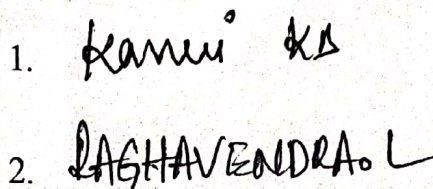 1. Kanni KB
2. RAGHAVENDRA. L